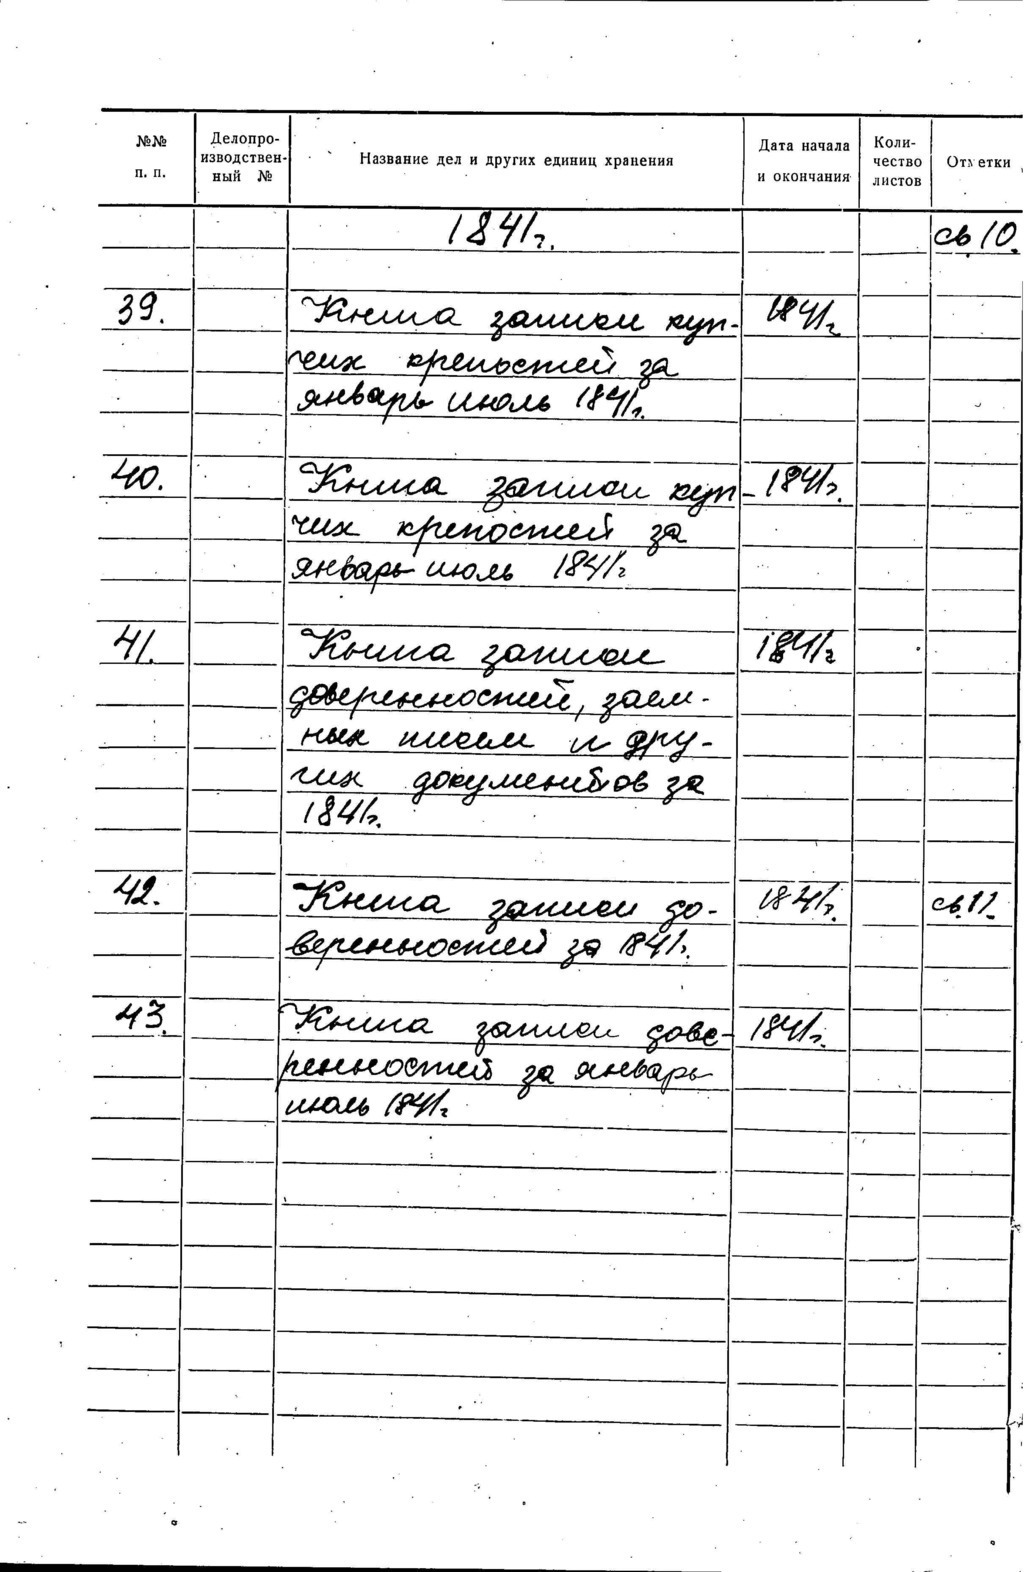 №№ п. п.
Делопро-
изводствен-
ный №
Название дел и других единиц хранения
Дата начала
и окончания
Коли-
чество
листов
Отметки
1841г.
св 10.
39.
Книга записи куп-
1841г
чих крепостей за
январь июль 1841г.
40.
Книга записи куп-
1841г.
чих крепостей за
январь июль 1841г
41.
Книга записи
1841г
доверенностей, заем-
ных писем и дру-
гих документов за
1841г.
42.
Книга записи до-
1841г.
св.11.
веренностей за 1841г.
43.
Книга записи дове-
1841г.
ренностей за январь
июль 1841г